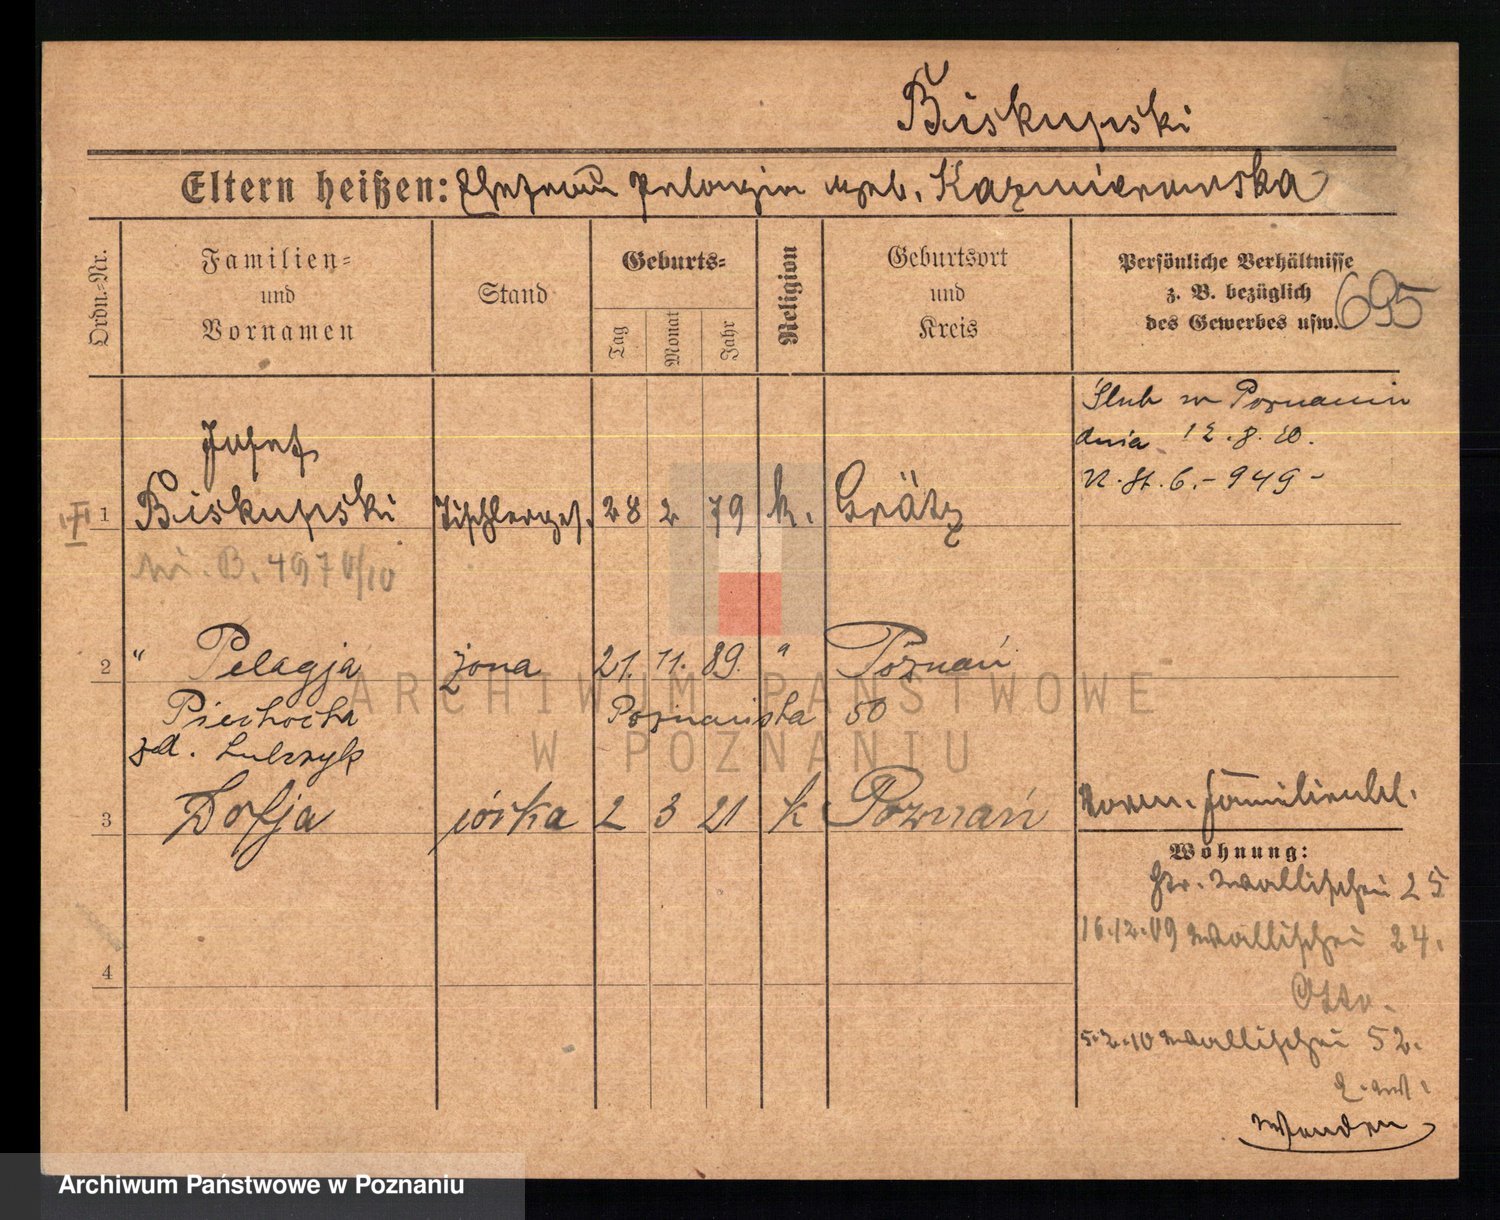 Biskupski
Eltern heißen: Ehefrau Pelagia geb. Kazmierowska
Ordn.-Nr.
Familien-
und
Vornamen
Stand
Geburts-
Tag
Monat
Jahr
Religion
Geburtsort
und
Kreis
Persönliche Verhältnisse
z. B. bezüglich
des Gewerbes usw.
695
Ślub w Poznaniu
dnia 12.8.20.
N. St. 6.-949-
Josef
1 Biskupski Tischlerges. 28 2 79 k. Grätz
B. 497
2 " Pelagja żona 21. 11. 89. " Poznań
Piechocka Poznańska 50
zd.
3 Zofja córka 2 3 21 k Poznań
Vorm. Familienbl.
Wohnung:
Gr. Wallischei 25
16.12.09 Wallischei 24.
Otto.
5.2.10 Wallischei 52.
Wenden
4
ARCHIWUM PAŃSTWOWE
W POZNANIU
Archiwum Państwowe w Poznaniu